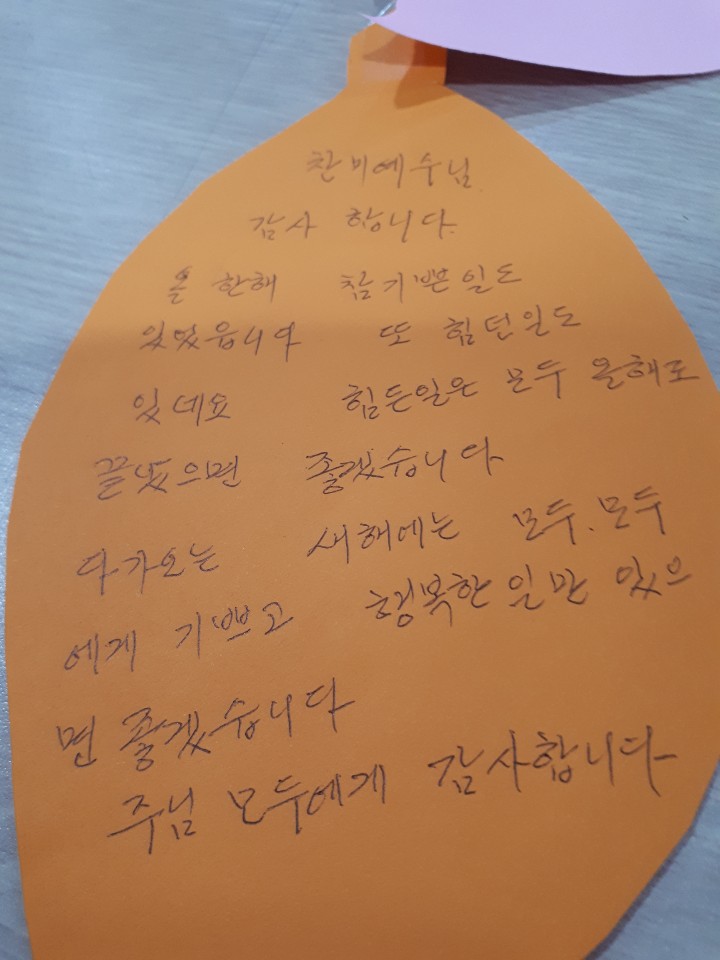 찬미예수님.
감사 합니다.
올 한해 참기쁜일도
있었읍니다 또 힘던일도
있데요 힘든일은 모두 올해로
끝났으면 좋겠습니다
다가오는 새해에는 모두.모두
에게 기쁘고 행복한일만 있으
면 좋겠습니다
주님 모두에게 감사합니다